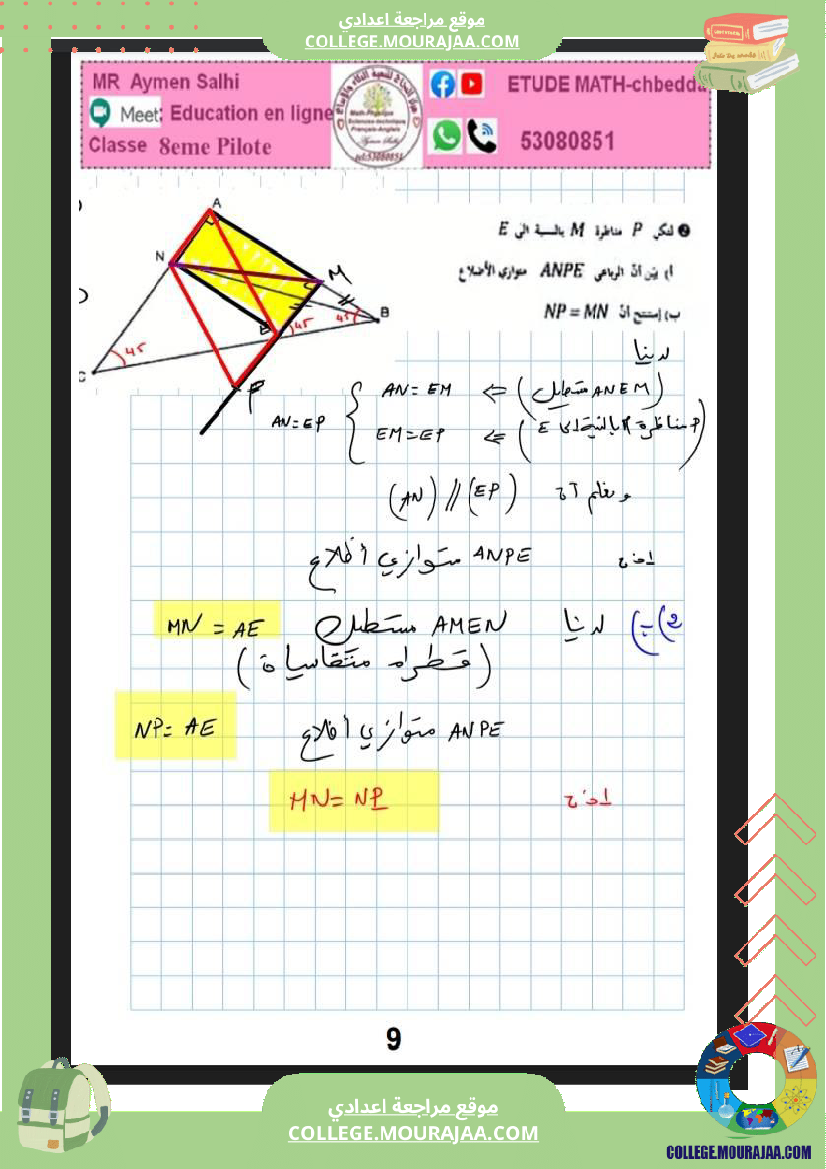 موقع مراجعة اعدادي
COLLEGE.MOURAJAA.COM
MR Aymen Salhi
Meet: Education en ligne
Classe 8eme Pilote
ETUDE MATH-chbedda
53080851
❷ لتكن P مناظرة M بالنسبة الى E
أ) بيّن أنّ الرباعي ANPE متوازي الأضلاع
ب) إستنتج أنّ NP = MN
A
N
M
B
E
C
P
45
45
45
لدينا
(ANEM مستطيل) ⇐ AN = EM
(P مناظرة M بالنسبة إلى E) ⇐ EM = EP
AN = EP
و نعلم أن (AN) // (EP)
إذن ANPE متوازي أضلاع
2) ب) لدينا AMEN مستطيل MN = AE
(قطراه متقاسيان)
ANPE متوازي أضلاع NP = AE
إذن MN = NP
9
موقع مراجعة اعدادي
COLLEGE.MOURAJAA.COM
COLLEGE.MOURAJAA.COM